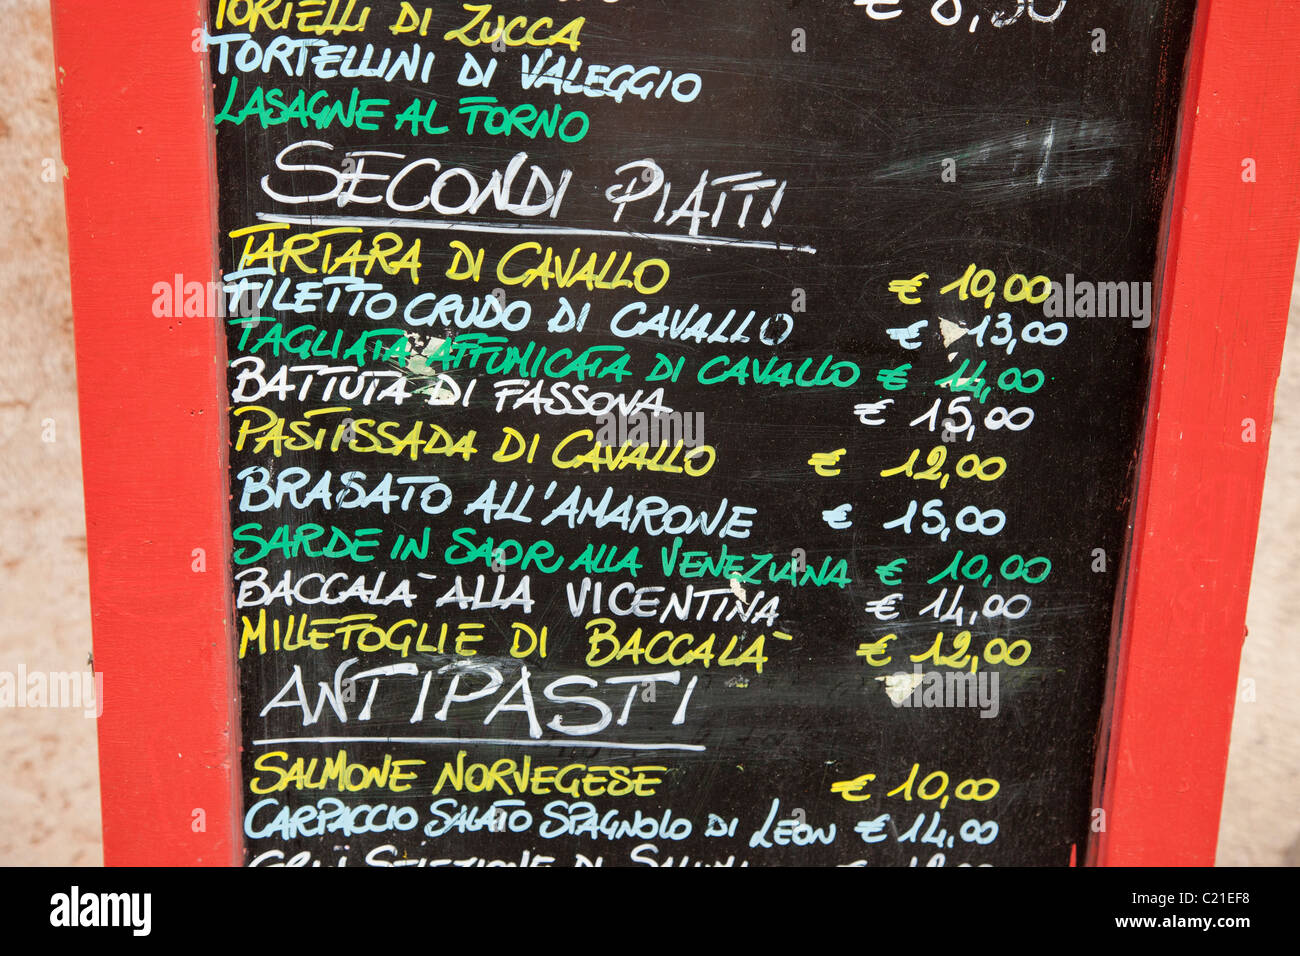 € 8,50
TORTELLI DI ZUCCA
TORTELLINI DI VALEGGIO
LASAGNE AL TORNO
SECONDI PIATTI
TARTARA DI CAVALLO € 10,00
FILETTO CRUDO DI CAVALLO € 13,00
TAGLIATA AFFUMICATA DI CAVALLO € 14,00
BATTUTA DI FASSONA € 15,00
PASTISSADA DI CAVALLO € 12,00
BRASATO ALL'AMARONE € 15,00
SARDE IN SAOR ALLA VENEZIANA € 10,00
BACCALÀ ALLA VICENTINA € 14,00
MILLEFOGLIE DI BACCALÀ € 12,00
ANTIPASTI
SALMONE NORVEGESE € 10,00
CARPACCIO SALATO SPAGNOLO DI LEON € 14,00
SELEZIONE DI
alamy
Image ID: C21EF8
www.alamy.com